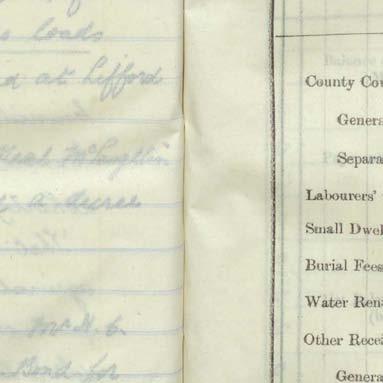 of
loads
at Lifford
McLaughlin
a decree
Mr H. C.
Bond for
County Cou
Genera
Separa
Labourers'
Small Dwel
Burial Fees
Water Ren
Other Recei
Genera